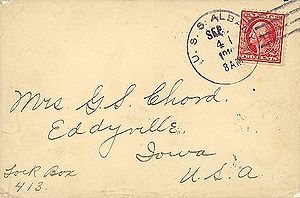 U. S. S. ALBA
SEP.
4
8 AM
Mrs. G.S. Chord.
Eddyville.
Iowa
U.S.A.
Lock Box
413.